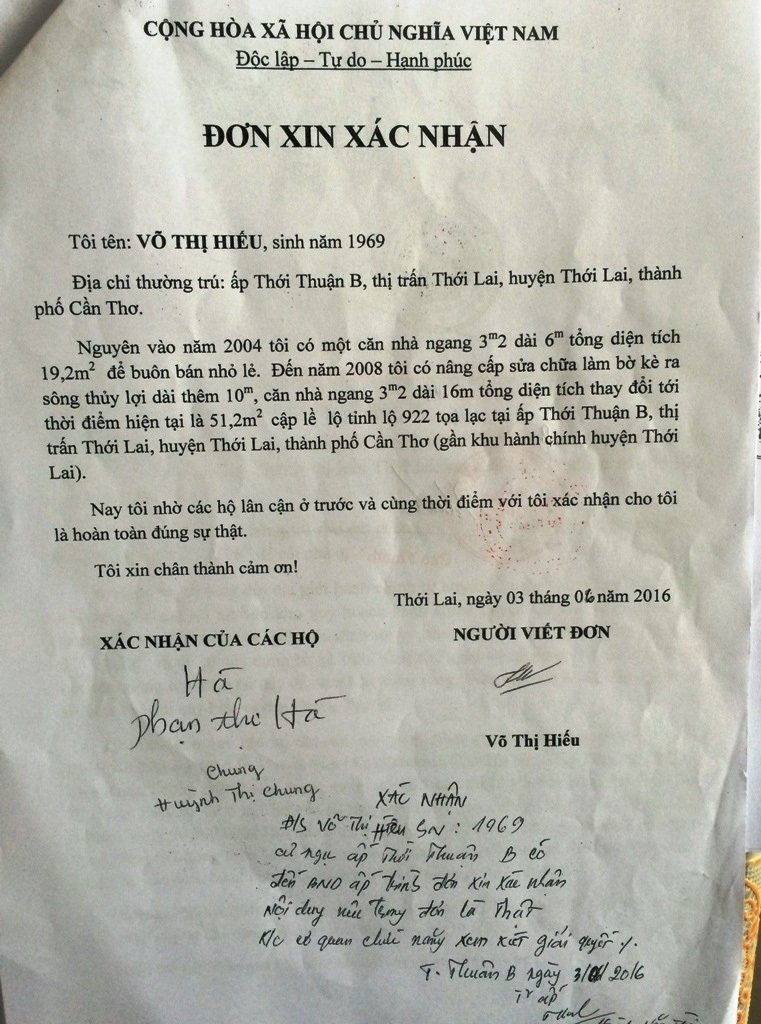 CỘNG HÒA XÃ HỘI CHỦ NGHĨA VIỆT NAM
Độc lập – Tự do – Hạnh phúc
ĐƠN XIN XÁC NHẬN
Tôi tên: VÕ THỊ HIẾU, sinh năm 1969
Địa chỉ thường trú: ấp Thới Thuận B, thị trấn Thới Lai, huyện Thới Lai, thành
phố Cần Thơ.
Nguyên vào năm 2004 tôi có một căn nhà ngang 3ᵐ2 dài 6ᵐ tổng diện tích
19,2m² để buôn bán nhỏ lẻ. Đến năm 2008 tôi có nâng cấp sửa chữa làm bờ kè ra
sông thủy lợi dài thêm 10ᵐ, căn nhà ngang 3ᵐ2 dài 16m tổng diện tích thay đổi tới
thời điểm hiện tại là 51,2m² cập lề lộ tỉnh lộ 922 tọa lạc tại ấp Thới Thuận B, thị
trấn Thới Lai, huyện Thới Lai, thành phố Cần Thơ (gần khu hành chính huyện Thới
Lai).
Nay tôi nhờ các hộ lân cận ở trước và cùng thời điểm với tôi xác nhận cho tôi
là hoàn toàn đúng sự thật.
Tôi xin chân thành cảm ơn!
Thới Lai, ngày 03 tháng 06 năm 2016
XÁC NHẬN CỦA CÁC HỘ
NGƯỜI VIẾT ĐƠN
Hà
Phạn thu Hà
Võ Thị Hiếu
Chung
Huỳnh Thị Chung
XÁC NHẬN
Đ/S Võ Thị Hiếu SN: 1969
cư ngụ ấp Thới Thuận B có
đến BND ấp trình đơn xin xác nhận
Nội dung nêu trong đơn là Thật
K/c cơ quan chức năng xem xét giải quyết /.
T. Thuận B ngày 3/6/2016
Tr ấp